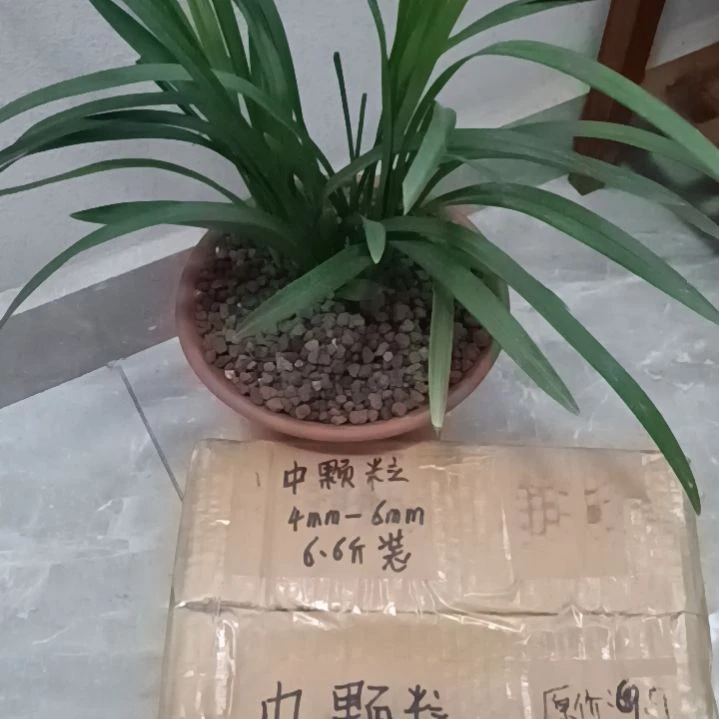 中颗粒
4mm-6mm
6.6斤装
中颗粒
原价: